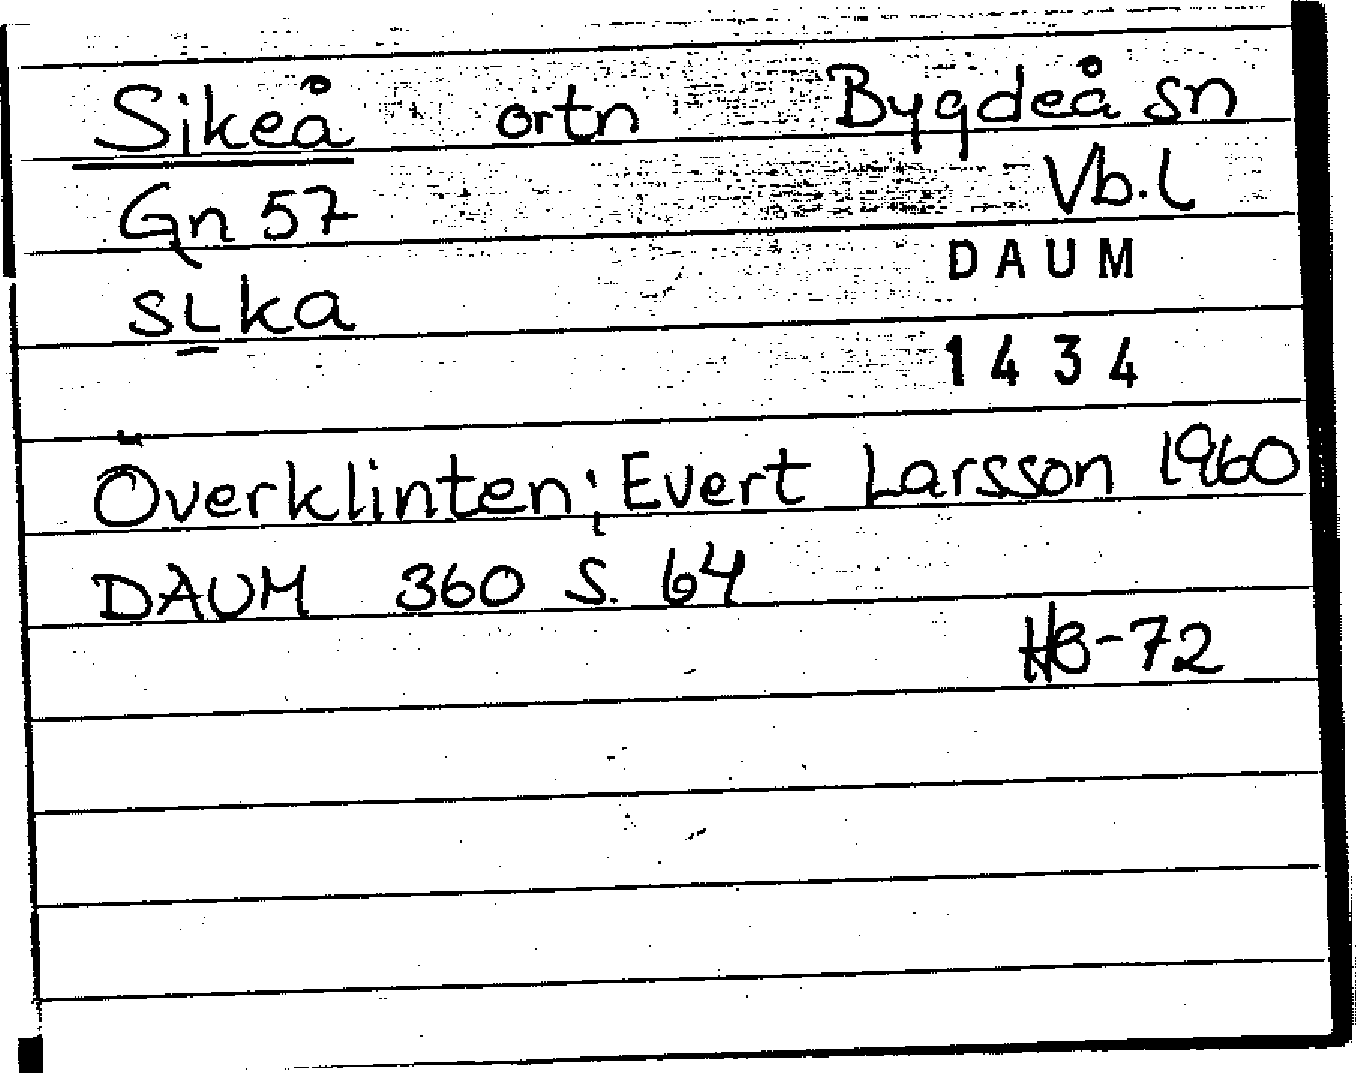 Sikeå ortn Bygdeå sn
Gn 57 Vb.l
sɩka DAUM
1434
Överklinten; Evert Larsson 1960
DAUM 360 S. 64
HB-72